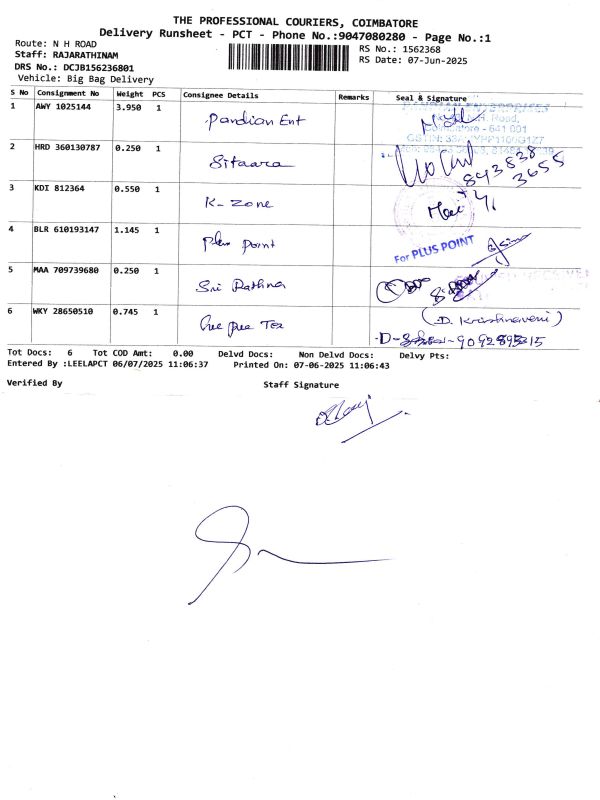 THE PROFESSIONAL COURIERS, COIMBATORE
Delivery Runsheet - PCT - Phone No.:9047080280 - Page No.:1
Route: N H ROAD
Staff: RAJARATHINAM
DRS No.: DCJB156236801
Vehicle: Big Bag Delivery
RS No.: 1562368
RS Date: 07-Jun-2025
S No Consignment No Weight PCS Consignee Details Remarks Seal & Signature
1 AWY 1025144 3.950 1 Pandian Ent
N.H. Road,
Coimbatore - 641 001
2 HRD 360130787 0.250 1 Sitaara 843838
3655
3 KDI 812364 0.550 1 K-Zone
4 BLR 610193147 1.145 1 Plus Point For PLUS POINT
5 MAA 709739680 0.250 1 Sri Rathna
6 WKY 28650510 0.745 1 Tea (D. Krishnaveni)
Tot Docs: 6 Tot COD Amt: 0.00 Delvd Docs: Non Delvd Docs: Delvy Pts:
Entered By :LEELAPCT 06/07/2025 11:06:37 Printed On: 07-06-2025 11:06:43
Verified By Staff Signature